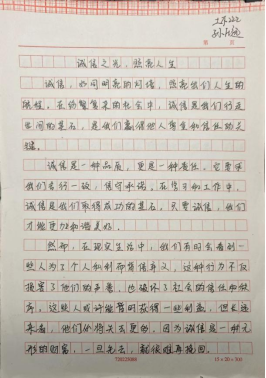 诚信之光，照亮人生
诚信，如同明亮的灯塔，照亮我们人生的
航程。在纷繁复杂的社会中，诚信是我们行走
世间的基石，是我们赢得他人尊重和信任的关
键。
诚信是一种品质，更是一种责任。它要求
我们言行一致，信守承诺。在学习和工作中，
诚信是我们取得成功的基石。只有诚信，我们
才能更加和谐美好。
然而，在现实生活中，我们有时会看到一
些人为了个人私利而背信弃义，这种行为不仅
损害了他们的声誉，也破坏了社会的信任和秩
序。这些人或许能暂时获得一些利益，但长远
来看，他们必将失去更多，因为诚信是一种无
形的财富，一旦失去，就很难再挽回。
15×20=300